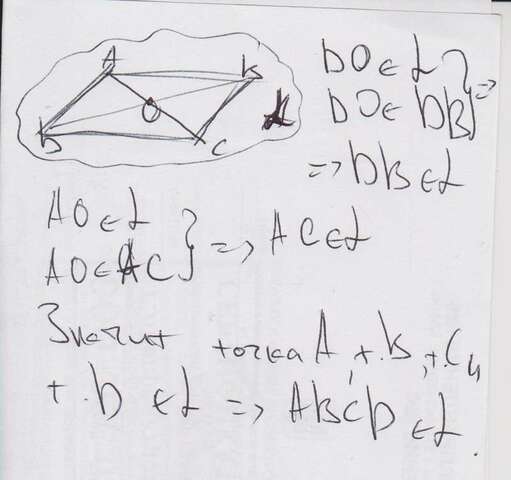 A B
DO ∈ α
D O C α
DO ∈ DB } =>
=> DB ∈ α
AO ∈ α
AO ∈ AC } => AC ∈ α
Значит точка A, т. B, т. C и
т. D ∈ α => ABCD ∈ α.